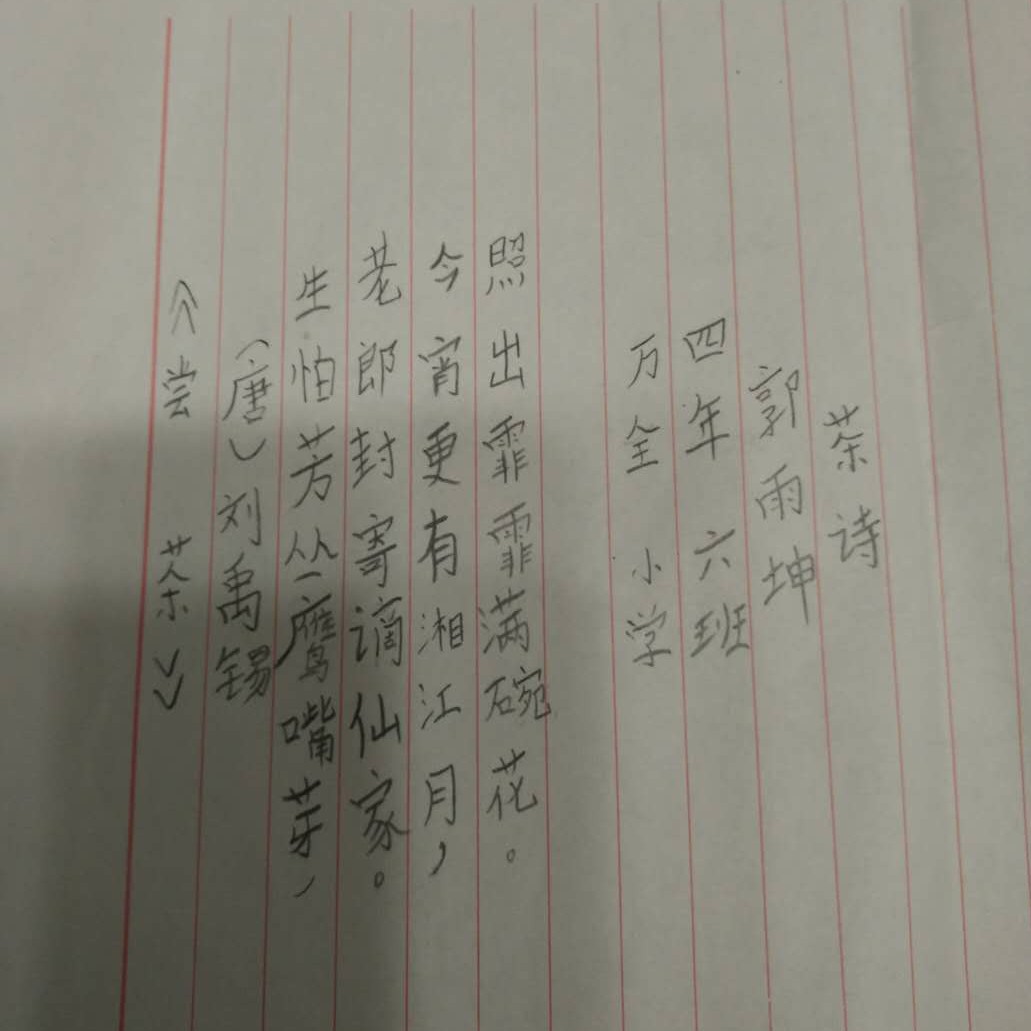 《尝茶》
（唐）刘禹锡
生怕芳丛鹰嘴芽，
老郎封寄谪仙家。
今宵更有湘江月，
照出霏霏满碗花。
万全小学
四年六班
郭雨坤
茶诗